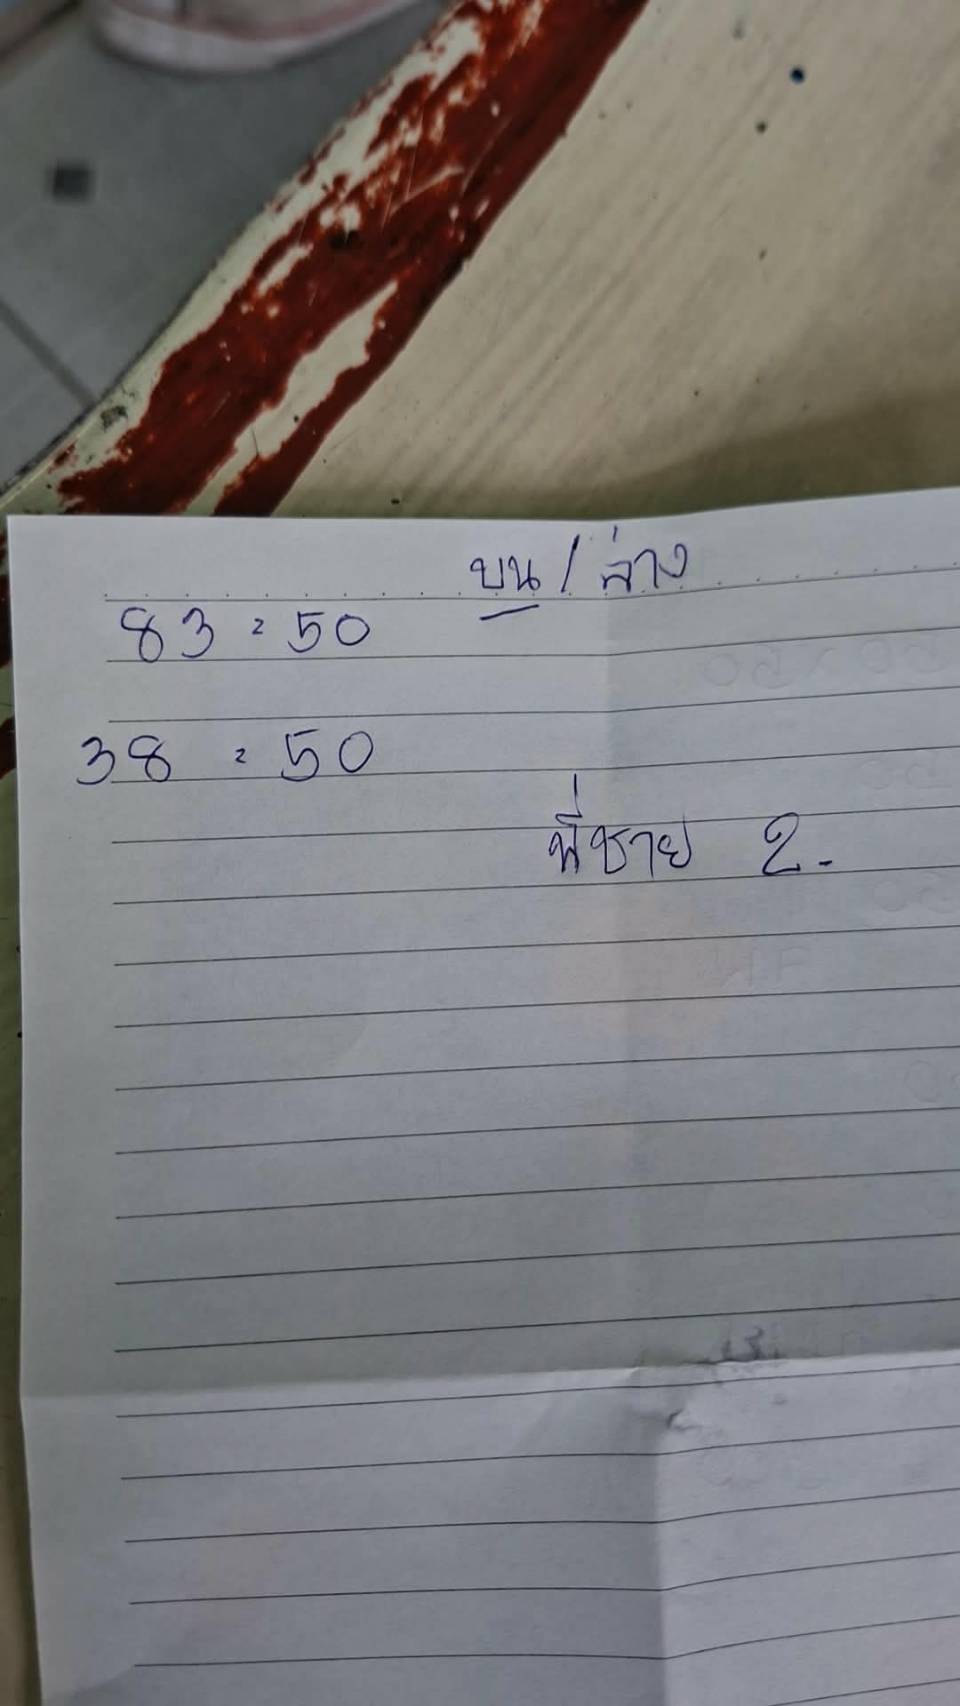 บน / ล่าง
83 = 50
38 = 50
พี่ชาย 2.